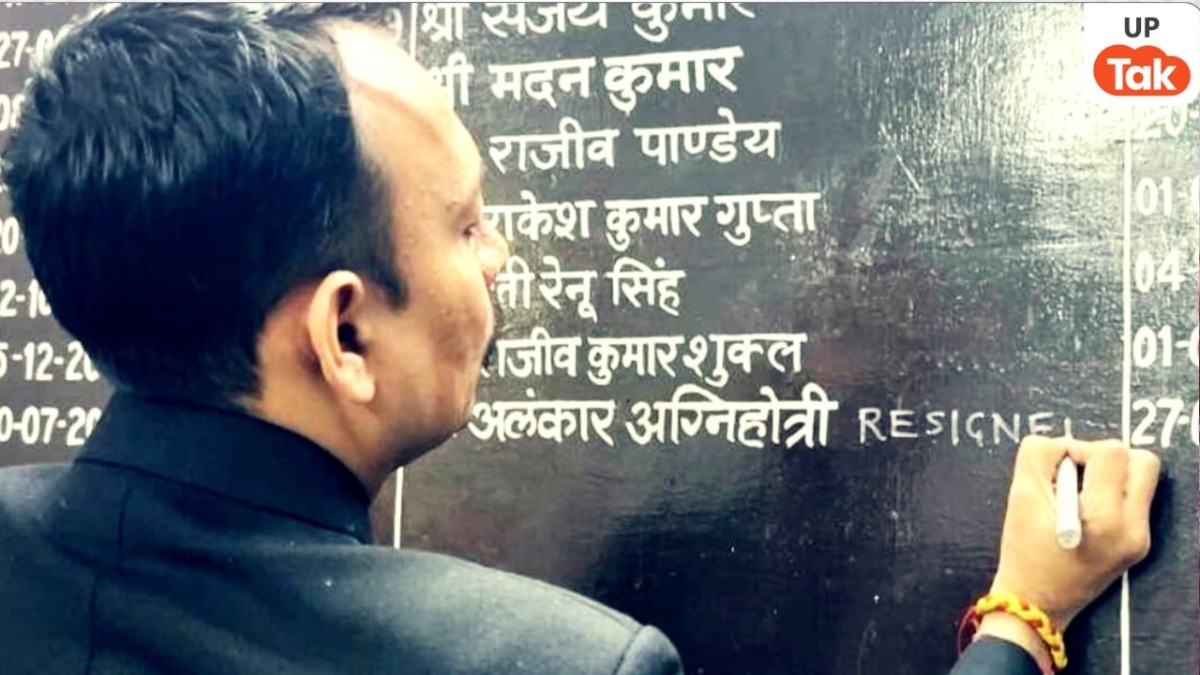 UP
Tak
27-0 श्री संजय कुमार
मदन कुमार
राजीव पाण्डेय 20-
कुमार गुप्ता 01
रेनू सिंह 04
5-12-20 कुमार शुक्ल 01-
0-07-20 अलंकार अग्निहोत्री RESIGNE 27-